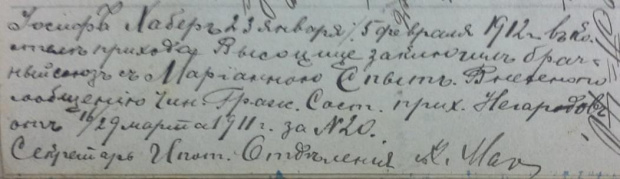 Іосифъ Хаберъ 23 января / 5 февраля 1912 г. въ ко-
стелѣ прихода Высоцице заключилъ брач-
ный союзъ съ Маріанною Спытъ. Внесено по
сообщенію Чин. Гражд. Сост. прих.
отъ 16/29 марта 1911 г. за № 20.
Секретарь Ипот. Отдѣленія